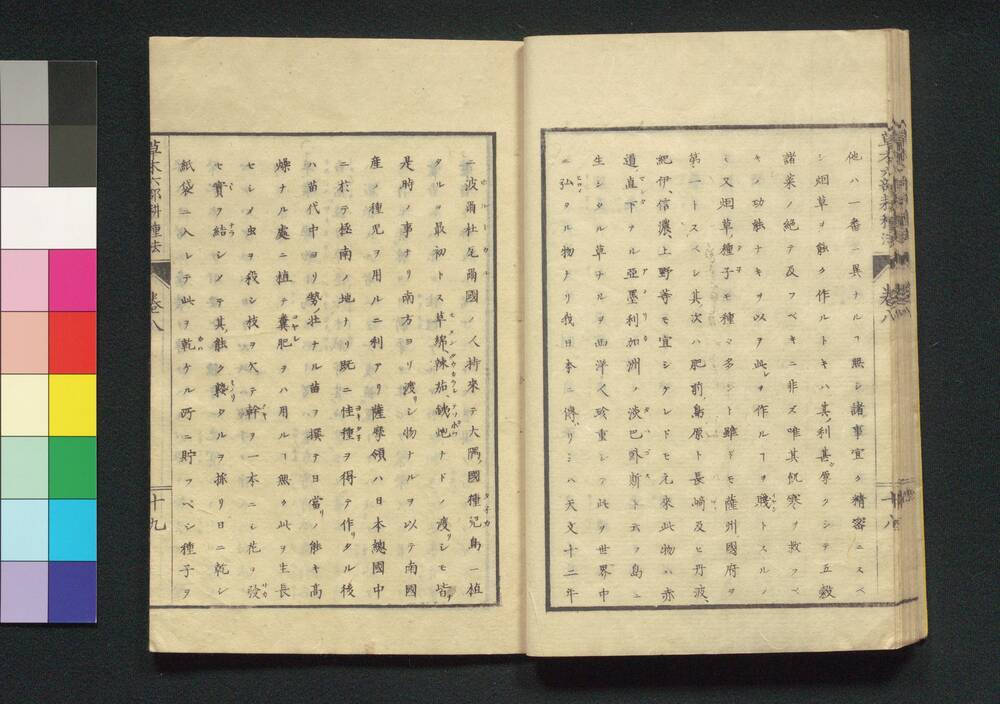 他ハ一番ニ異ナルヿ無シ諸事宜ク精密ニスベ
シ烟草ヲ能ク作ルトキハ其利甚厚クシテ五穀
諸菜ノ絶テ及フベキニ非ズ唯其飢寒ヲ救フベ
キノ功能ナキヲ以テ此レヲ作ルヿヲ賤トスルノ
ミ又烟草種子モ種々多シト雖ドモ薩州國府ヲ
第一トスベシ其次ハ肥前島原ト長崎及ヒ丹波、
紀伊、信濃、上野等モ宜シケレドモ元來此物ハ赤
道直下ナル亞墨利加洲ノ淡巴姑斯ト云フ島ニ
生シタル草ナルヲ西洋人珍重シテ此ヲ世界中
ニ弘タル物ナリ我日本ニ傳リシハ天文十二年
十八
草木六部耕種法
卷八
ニ波爾杜瓦爾國ノ人持來テ大隅國種兒島ニ植
タルヲ最初トス草綿、辣茄、鉄炮ナドノ渡リシモ皆
是時ノ事ナリ南方ヨリ渡リシ物ナルヲ以テ南國
産ノ種兒ヲ用ルニ利アリ薩摩領ハ日本總國中
ニ於テ極南ノ地ナリ既ニ佳種ヲ得テ作リタル後
ハ苗代中ヨリ勢壮ナル苗ヲ撰テ日當リノ能キ高
燥ナル處ニ植テ糞肥ヲハ用ルヿ無ク此ヲ生長
セシメ虫ヲ殺シ枝ヲ欠テ幹ヲ一本ニシ花ヲ發
セ實ヲ結シメテ其能ク稔タルヲ採リ日ニ乾シ
紙袋ニ入レテ此ヲ乾ケル所ニ貯フベシ種子ヲ
草木六部耕種法
卷八
十九